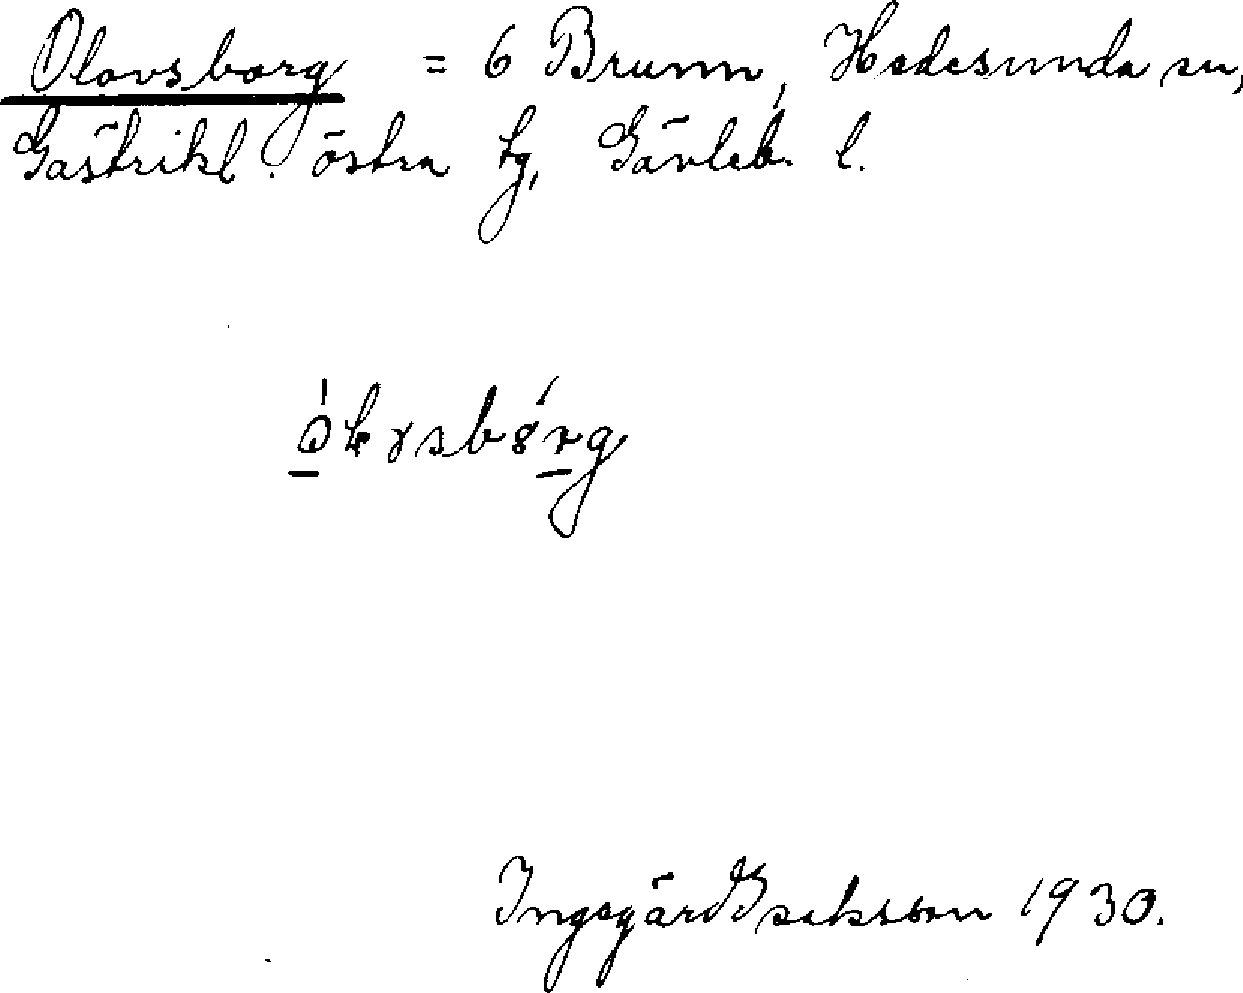 Olovsborg = 6 Brunn, Hedesunda sn,
Gästrikl. östra tg, Gävleb. l.
Ingegärd Isaksson 1930.